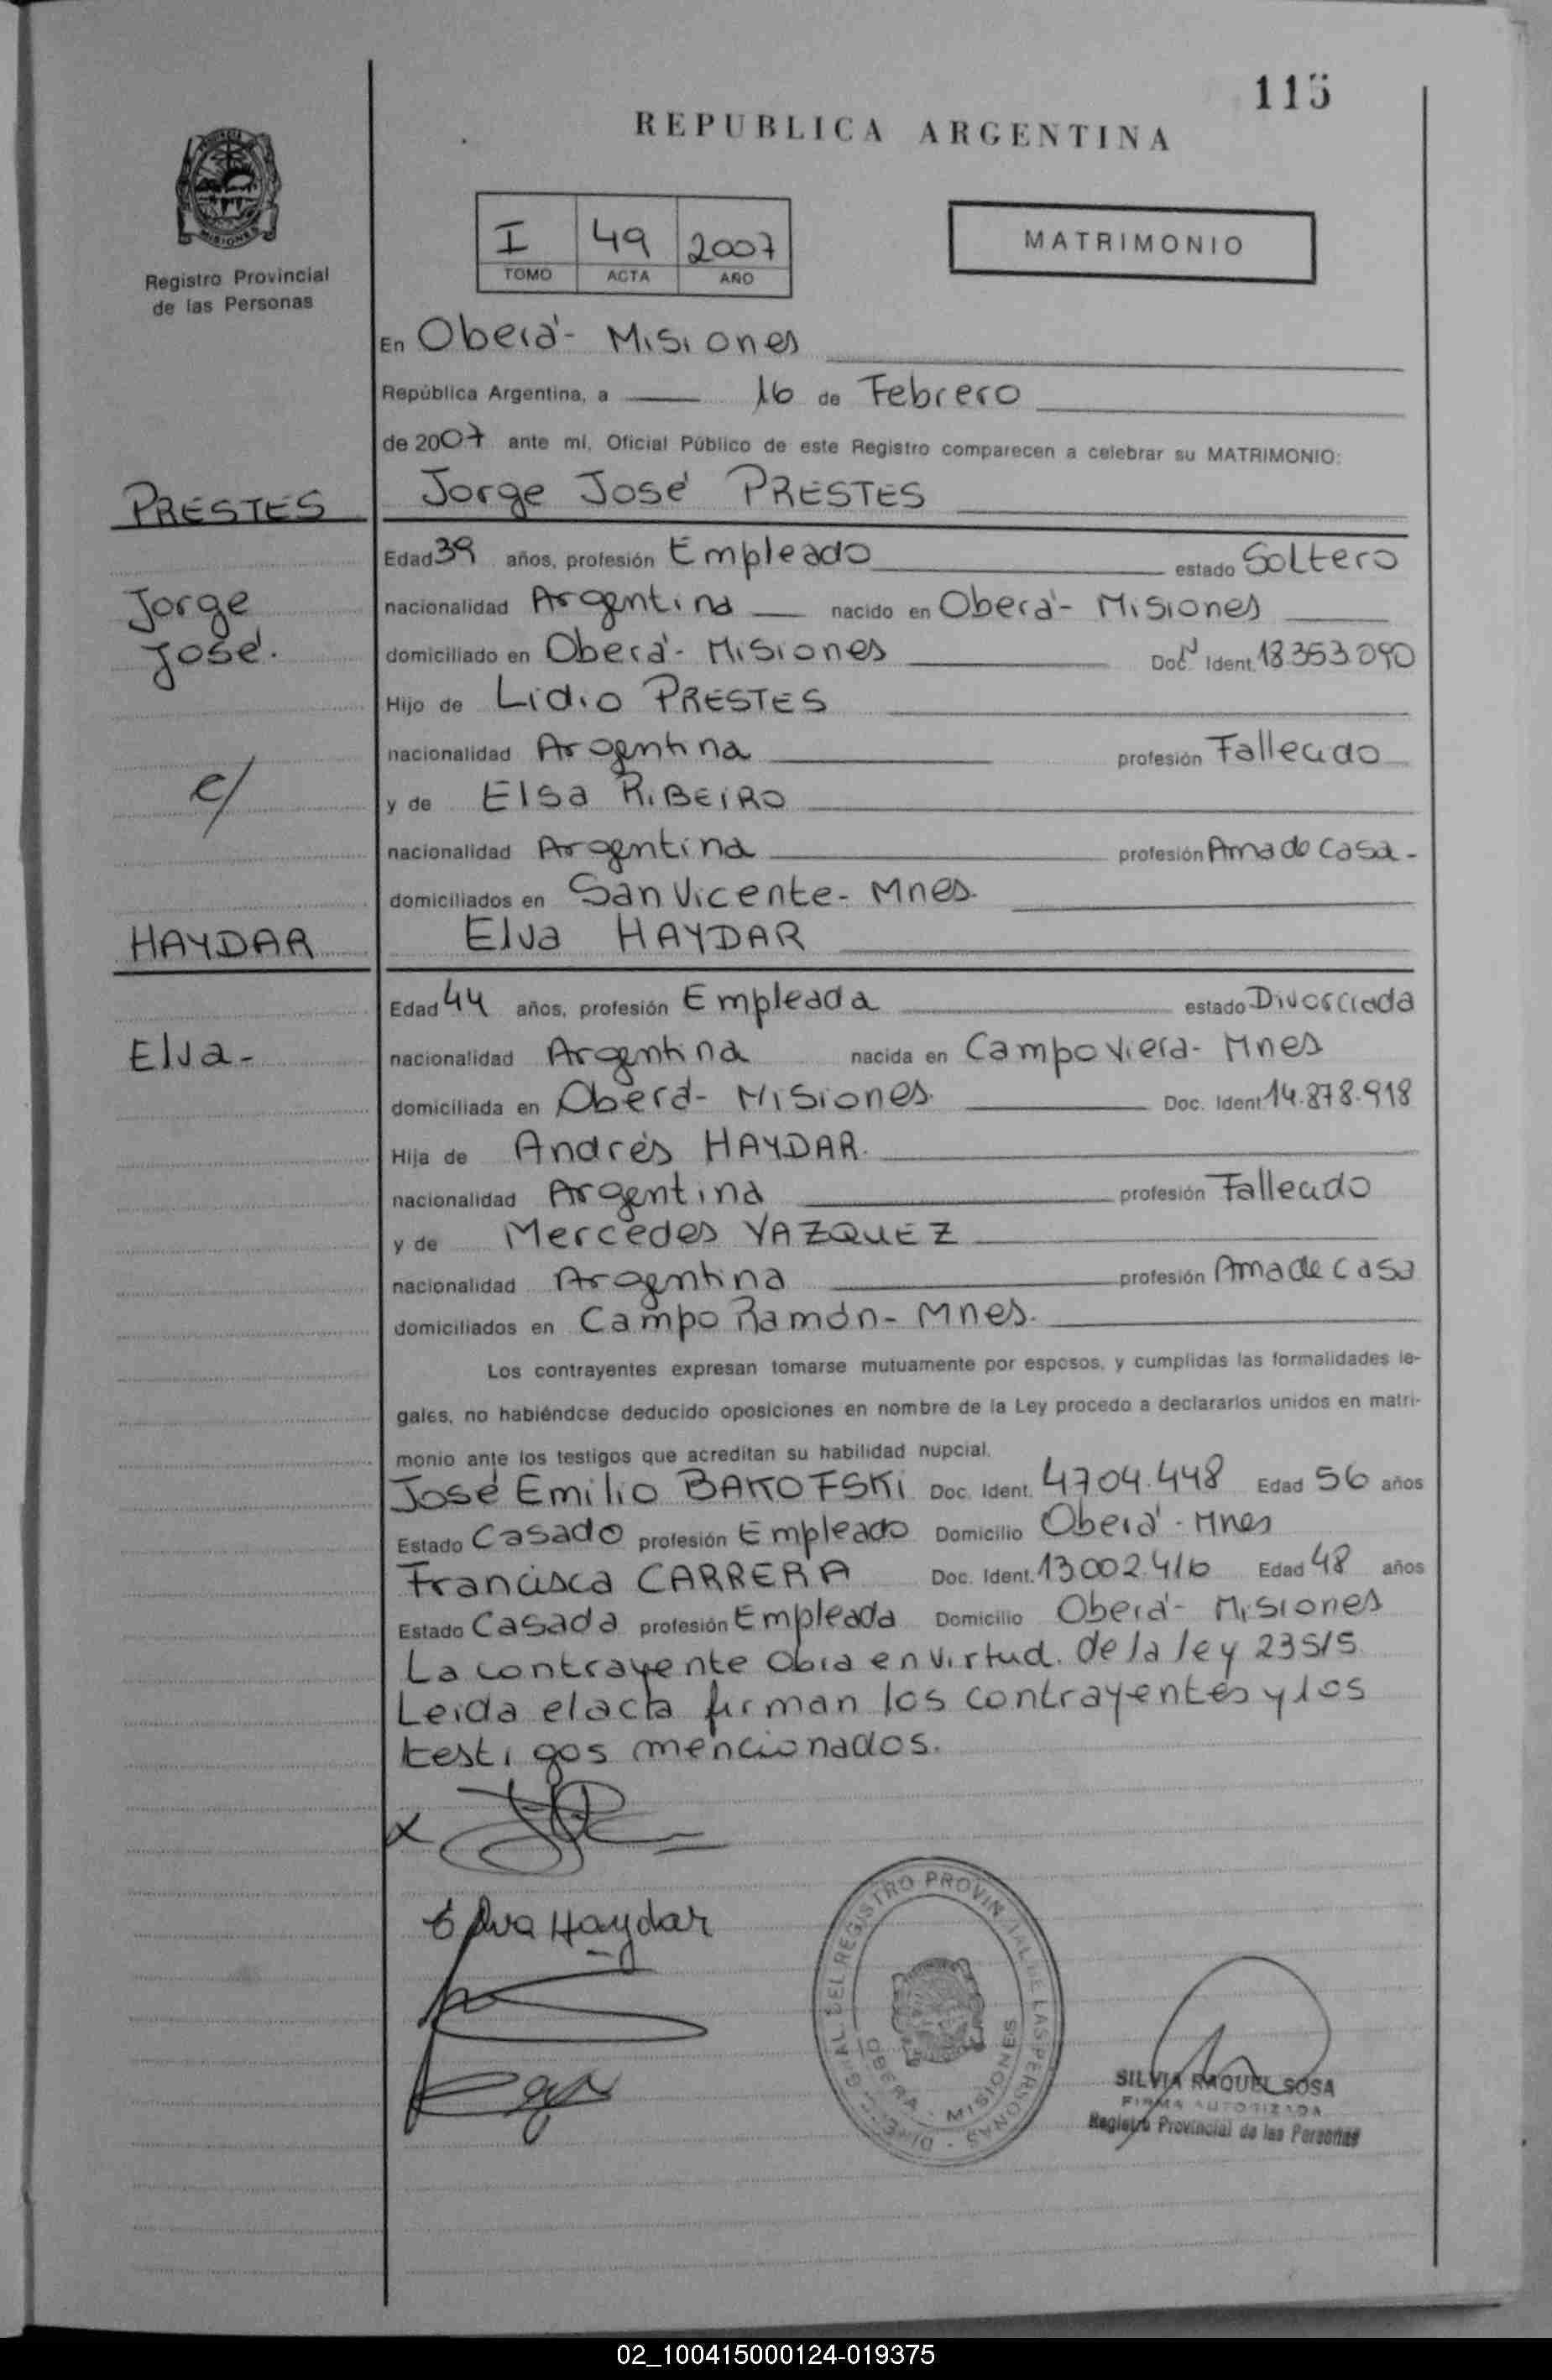 115
REPUBLICA ARGENTINA
I 49 2007
TOMO ACTA AÑO
MATRIMONIO
MISIONES
Registro Provincial
de las Personas
En Oberá - Misiones
República Argentina, a 16 de Febrero
de 2007 ante mí, Oficial Público de este Registro comparecen a celebrar su MATRIMONIO:
PRESTES
Jorge José PRESTES
Edad 39 años, profesión Empleado estado Soltero
Jorge
José.
nacionalidad Argentina nacido en Oberá - Misiones
domiciliado en Oberá - Misiones Doc. Ident. 18.353.090
Hijo de Lidio PRESTES
nacionalidad Argentina profesión Fallecido
c/
y de Elsa RiBEiRO
nacionalidad Argentina profesión Ama de Casa -
domiciliados en San Vicente - Mnes.
HAYDAR
Elva HAYDAR
Edad 44 años, profesión Empleada estado Divorciada
Elva -
nacionalidad Argentina nacida en Campo Viera - Mnes
domiciliada en Oberá - Misiones Doc. Ident 14.878.918
Hija de Andrés HAYDAR.
nacionalidad Argentina profesión Fallecido
y de Mercedes VAZQUEZ
nacionalidad Argentina profesión Ama de Casa
domiciliados en Campo Ramón - Mnes.
Los contrayentes expresan tomarse mutuamente por esposos, y cumplidas las formalidades le-
gales, no habiéndose deducido oposiciones en nombre de la Ley procedo a declararlos unidos en matri-
monio ante los testigos que acreditan su habilidad nupcial.
José Emilio BAKOFSKi Doc. Ident. 4704.448 Edad 56 años
Estado Casado profesión Empleado Domicilio Oberá - Mnes
Francisca CARRERA Doc. Ident. 13.002.416 Edad 48 años
Estado Casada profesión Empleada Domicilio Oberá - Misiones
La contrayente obra en virtud. de la ley 23515
Leida el acta firman los contrayentes y los
testigos mencionados.
x
Elva Haydar
REGISTRO PROVINCIAL DE LAS PERSONAS
OBERA - MISIONES
SILVIA RAQUEL SOSA
FIRMA AUTORIZADA
Registro Provincial de las Personas
02_100415000124-019375